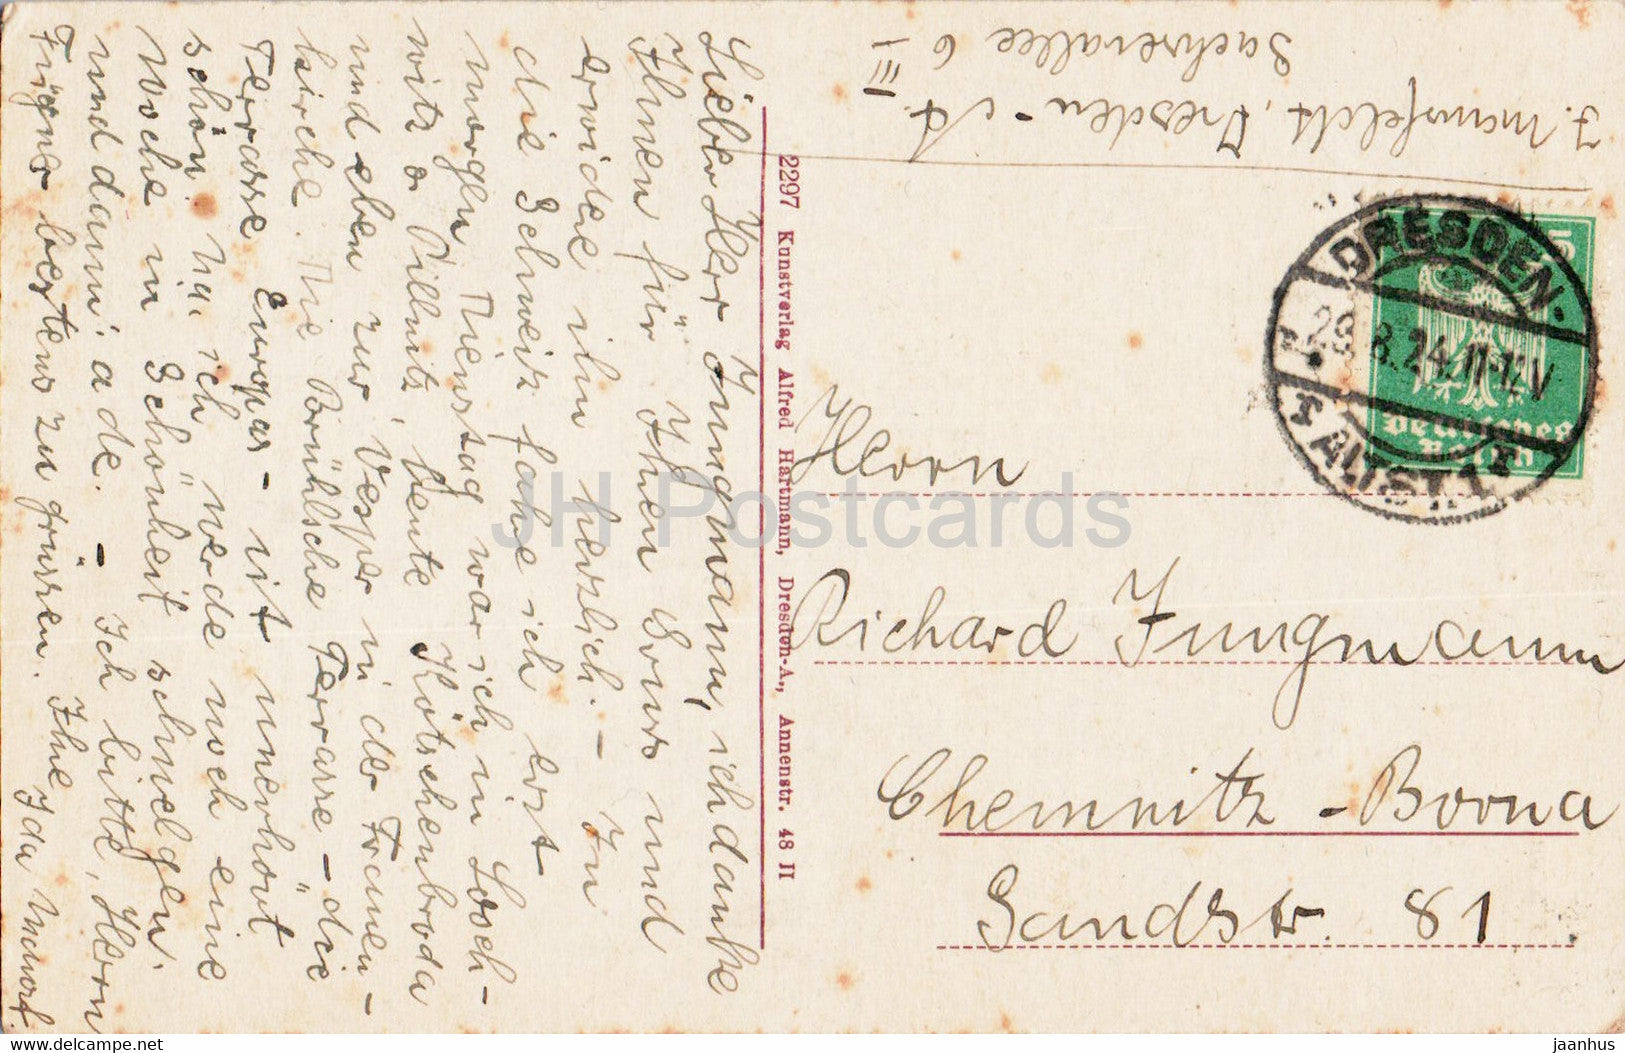 Lieber Herr Jungmann, ich danke
Ihnen für Ihren Gruss und
erwidere ihn herzlich. - In
die Schweiz fahre ich erst
morgen. Dienstag war ich in Losch-
witz & Pillnitz, heute Kötschenbroda
und eben zur Vesper in der Frauen-
kirche. Die Brühlsche Terrasse - die
Terasse Europas - ist unerhört
schön. Na, ich werde noch eine
Woche in Schönheit schwelgen.
und dann: ade. - Ich bitte, Herrn
bestens zu grüssen. Ihre Ida
J. Mansfeldt, Dresden - A.
Sachsenallee 6 III
2297 Kunstverlag Alfred Hartmann, Dresden-A., Annenstr. 48 II
DRESDEN-
ALTST.
29.8.24.11-12V
5
Deutsches
Reich
Herrn
Richard Jungmann
Chemnitz - Borna
Sandstr. 81.
JH Postcards
delcampe.net
jaanhus